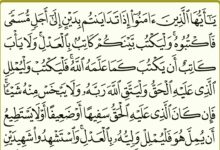 يَٰٓأَيُّهَا ٱلَّذِينَ ءَامَنُوٓا۟ إِذَا تَدَايَنتُم بِدَيْنٍ إِلَىٰٓ أَجَلٍ مُّسَمًّى
فَٱكْتُبُوهُ وَلْيَكْتُب بَّيْنَكُمْ كَاتِبٌۢ بِٱلْعَدْلِ وَلَا يَأْبَ
كَاتِبٌ أَن يَكْتُبَ كَمَا عَلَّمَهُ ٱللَّهُ فَلْيَكْتُبْ وَلْيُمْلِلِ
ٱلَّذِى عَلَيْهِ ٱلْحَقُّ وَلْيَتَّقِ ٱللَّهَ رَبَّهُۥ وَلَا يَبْخَسْ مِنْهُ شَيْـًٔا
فَإِن كَانَ ٱلَّذِى عَلَيْهِ ٱلْحَقُّ سَفِيهًا أَوْ ضَعِيفًا أَوْ لَا يَسْتَطِيعُ
أَن يُمِلَّ هُوَ فَلْيُمْلِلْ وَلِيُّهُۥ بِٱلْعَدْلِ وَٱسْتَشْهِدُوا۟ شَهِيدَيْنِ